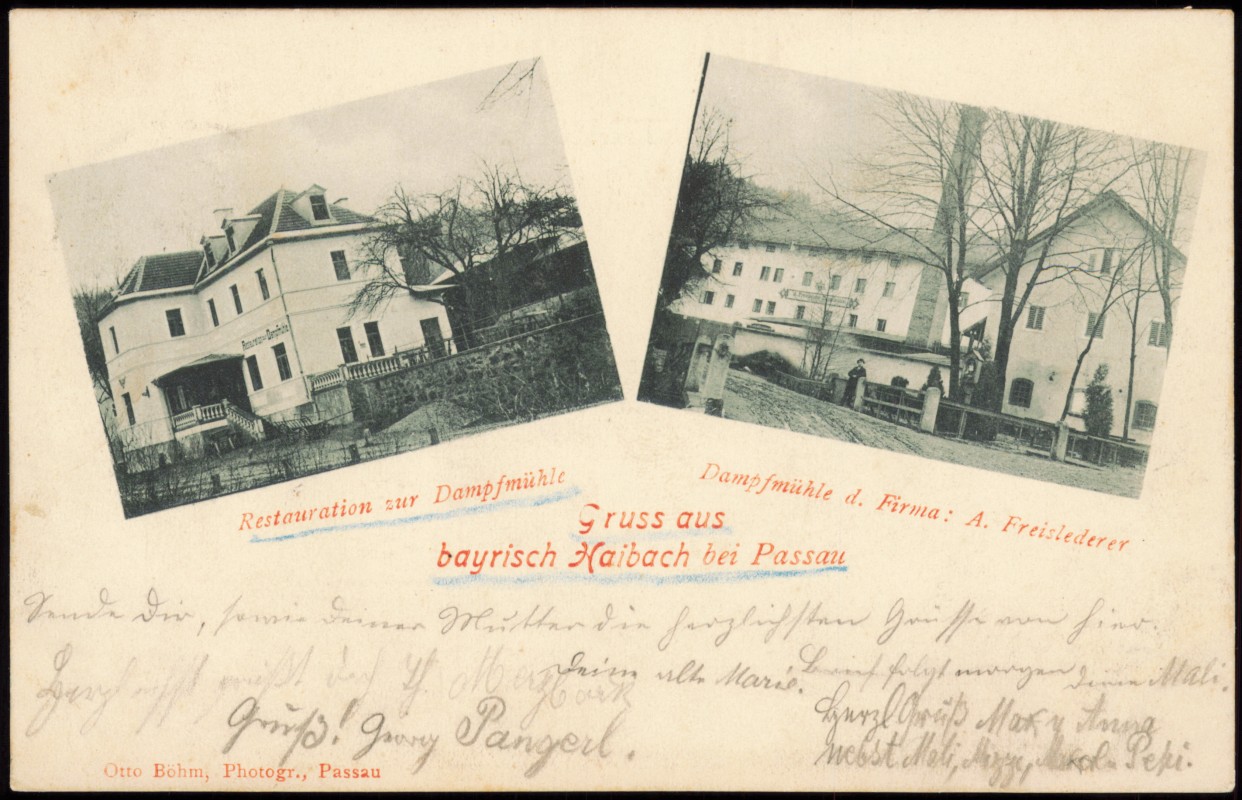 Restauration zur Dampfmühle
Restauration zur Dampfmühle
Dampfmühle d. Firma: A. Freislederer
Gruss aus
bayrisch Haibach bei Passau
Sende Dir, sowie Deiner Mutter die herzlichsten Grüsse von hier.
Deine alte Marie. Brief folgt morgen Deine Mali.
Herzl
Gruß! Georg Pangerl.
Herzl Gruß Max u Anna
nebst Mali, Pepi.
Otto Böhm, Photogr., Passau